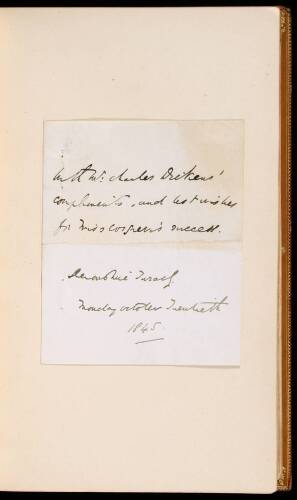 With Mr. Charles Dickens'
compliments, and best wishes
for Miss Cooper's success.
Devonshire Terrace.
Monday October Twentieth
1845.